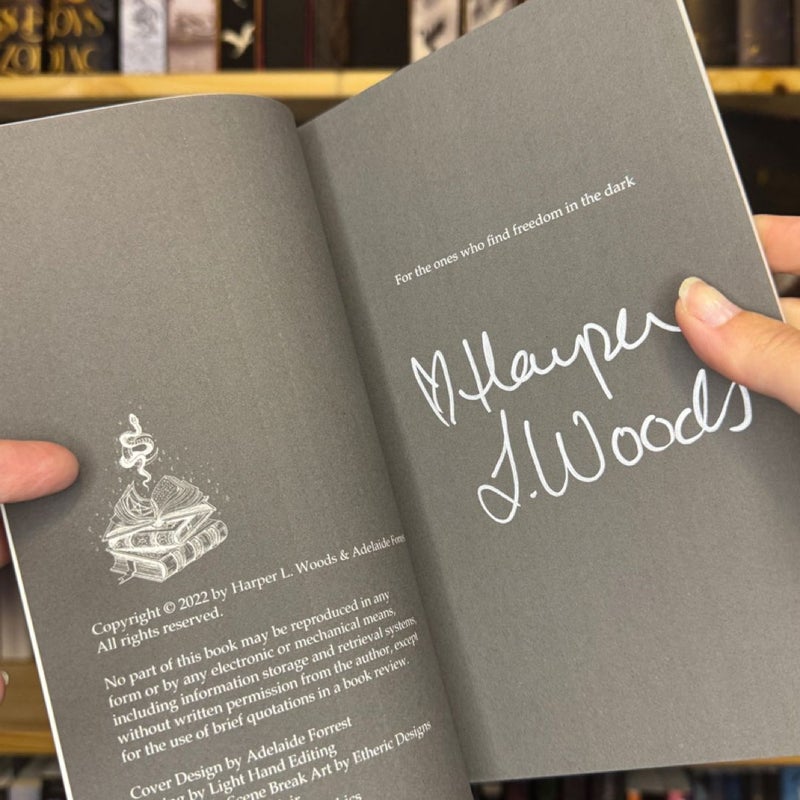 ZODIAC
Copyright © 2022 by Harper L. Woods & Adelaide Forrest
All rights reserved.
No part of this book may be reproduced in any
form or by any electronic or mechanical means,
including information storage and retrieval systems,
without written permission from the author, except
for the use of brief quotations in a book review.
Cover Design by Adelaide Forrest
by Light Hand Editing
Scene Break Art by Etheric Designs
For the ones who find freedom in the dark
Harper
L. Woods